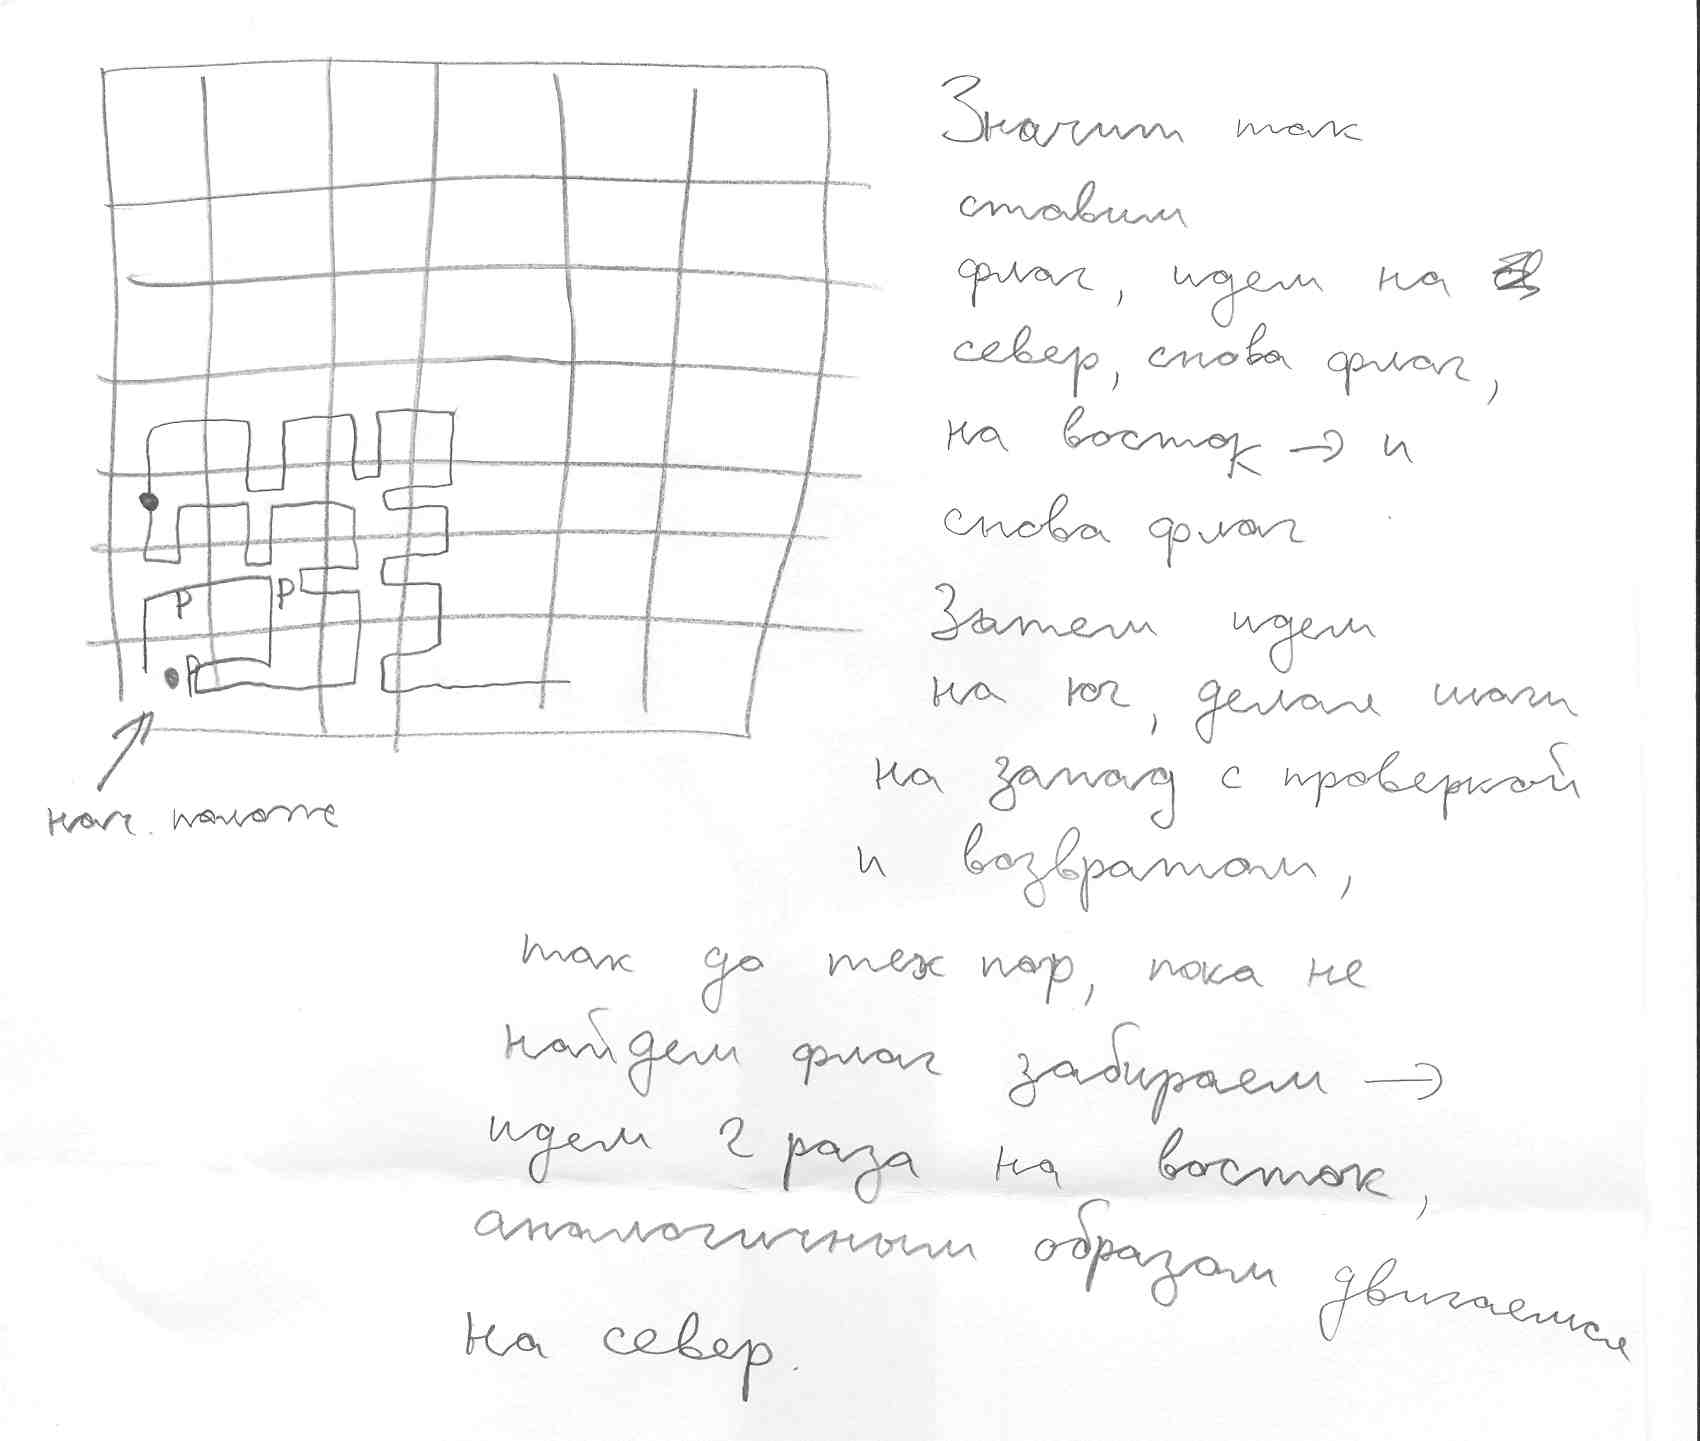 Значит так
ставим
флаг, идем на
север, снова флаг,
на восток → и
снова флаг
Затем идем
на юг, делая шаги
на запад с проверкой
и возвратом,
так до тех пор, пока не
найдем флаг забираем →
идем 2 раза на восток,
аналогичным образом двигаемся
на север.
P P
P
нач. положе